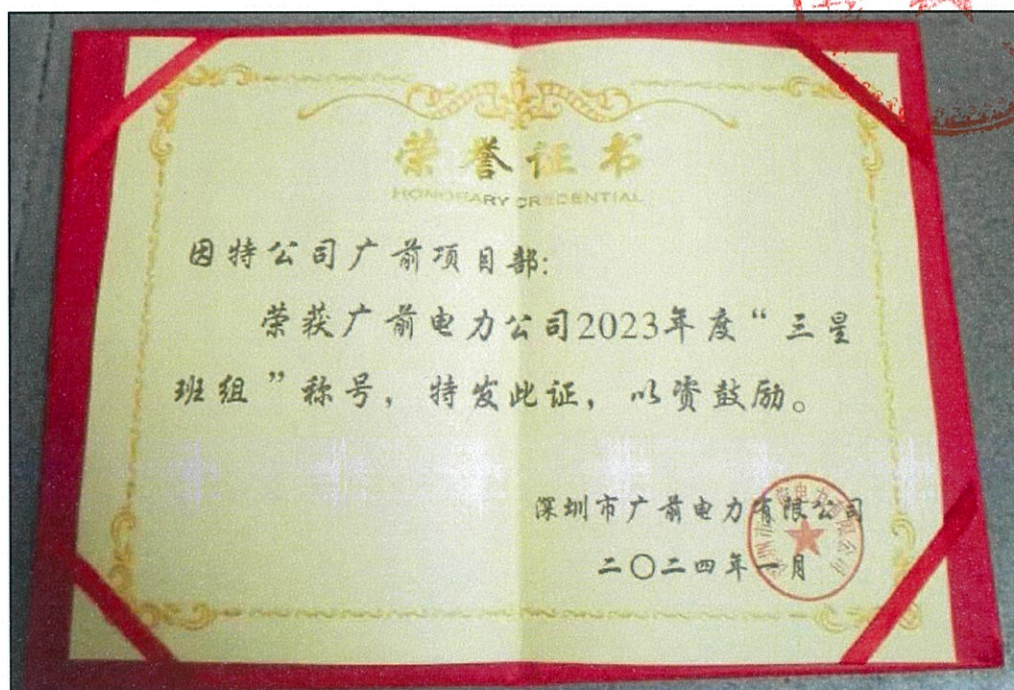 荣誉证书
HONORARY CREDENTIAL
因特公司广前项目部:
荣获广前电力公司2023年度“三星
班组”称号，特发此证，以资鼓励。
深圳市广前电力有限公司
二〇二四年一月